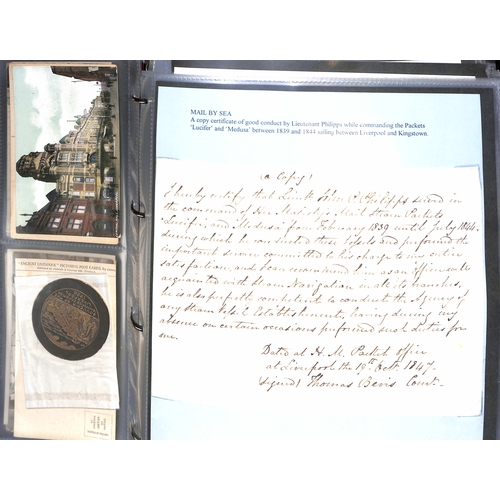 MAIL BY SEA
A copy certificate of good conduct by Lieutenant Philipps while commanding the Packets
'Lucifer' and 'Medusa' between 1839 and 1844 sailing between Liverpool and Kingstown.
(a Copy)
I hereby certify that Lieutt John Philipps served in
the command of Her Majesty's Mail Steam Packets
Lucifer, and Medusa from February 1839 until July 1844
during which I can said these Vessels and performed the
important service committed to his charge to my entire
satisfaction, and I can recommend him as an officer well
acquainted with Steam Navigation in all its branches,
he is also perfectly competent to conduct the Agency of
any Steam Vessel Establishment, having during my
absence on certain occasions performed such duties for
me.
Dated at H. M. Packet office
at Liverpool the 19th Octr. 1847.
(signed) Thomas Bevis Comr.
"ANCIENT LIVERPOOL" PICTORIAL POST CARDS